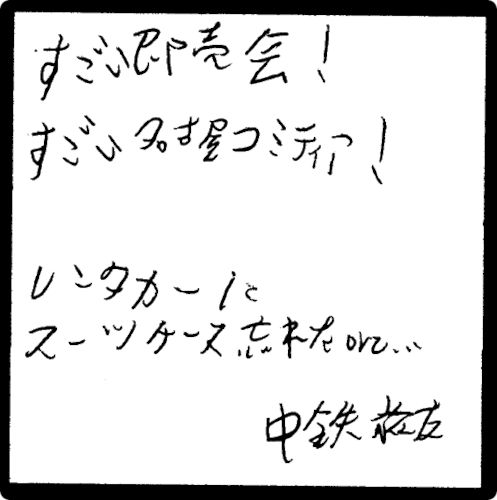 すごい即売会!
すごい名古屋コミティア!
レンタカーに
スーツケース忘れたorz...
中鉄